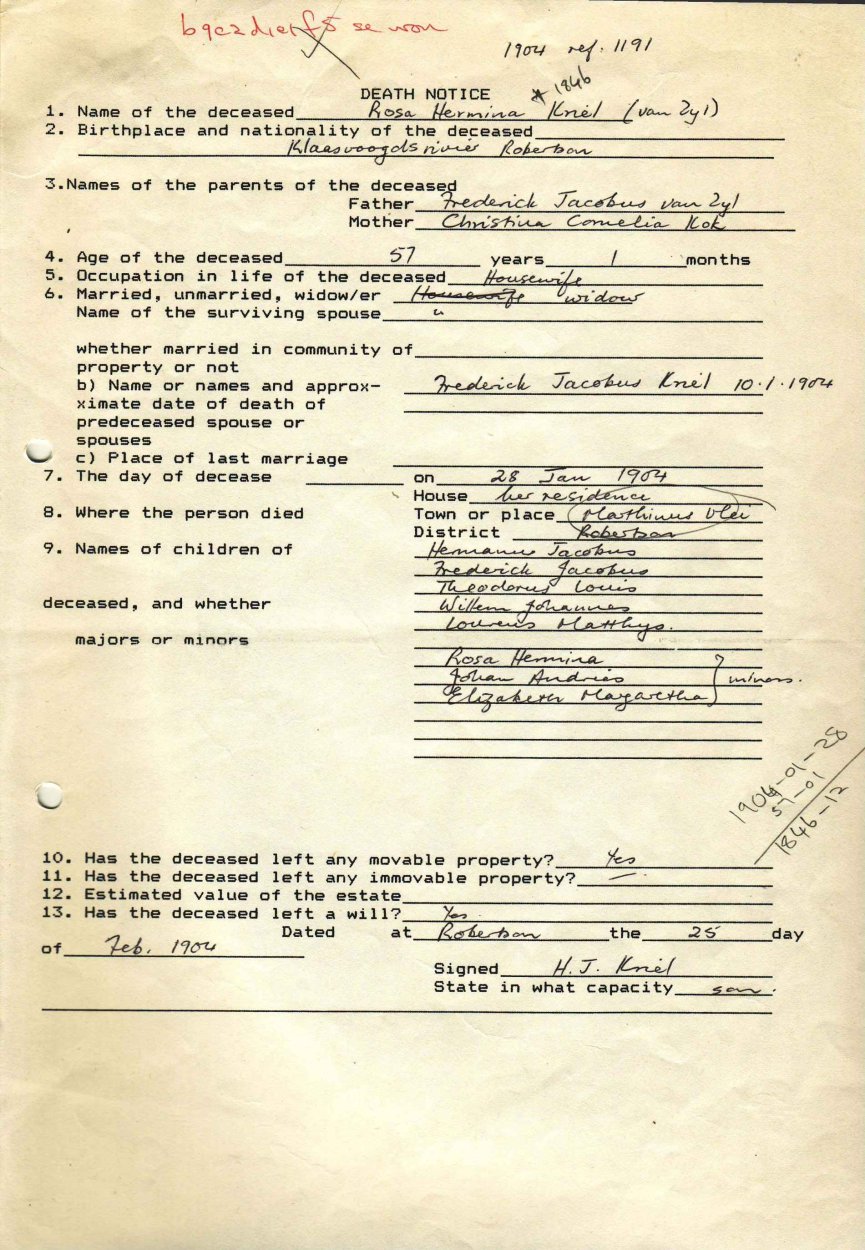 b9c2d1e1f5 se won
1904 ref. 1191
DEATH NOTICE * 1846
1. Name of the deceased Rosa Hermina Kriël (van Zyl)
2. Birthplace and nationality of the deceased
Klaasvoogdsrivier Robertson
3.Names of the parents of the deceased
Father Frederick Jacobus van Zyl
Mother Christina Cornelia Kok
4. Age of the deceased 57 years 1 months
5. Occupation in life of the deceased Housewife
6. Married, unmarried, widow/er Housewife widow
Name of the surviving spouse "
whether married in community of
property or not
b) Name or names and approx- Frederick Jacobus Kriël 10.1.1904
ximate date of death of
predeceased spouse or
spouses
c) Place of last marriage
7. The day of decease on 28 Jan 1904
House her residence
8. Where the person died Town or place Marthinus Vlei
District Robertson
9. Names of children of Hermanus Jacobus
Frederick Jacobus
Theodorus Louis
deceased, and whether Willem Johannes
Lourens Matthys.
majors or minors
Rosa Hermina
Johan Andries minors.
Elizabeth Magaretha
1904-01-28
57-01
1846-12
10. Has the deceased left any movable property? Yes
11. Has the deceased left any immovable property? —
12. Estimated value of the estate
13. Has the deceased left a will? Yes.
Dated at Robertson the 25 day
of Feb. 1904
Signed H. J. Kriël
State in what capacity son.